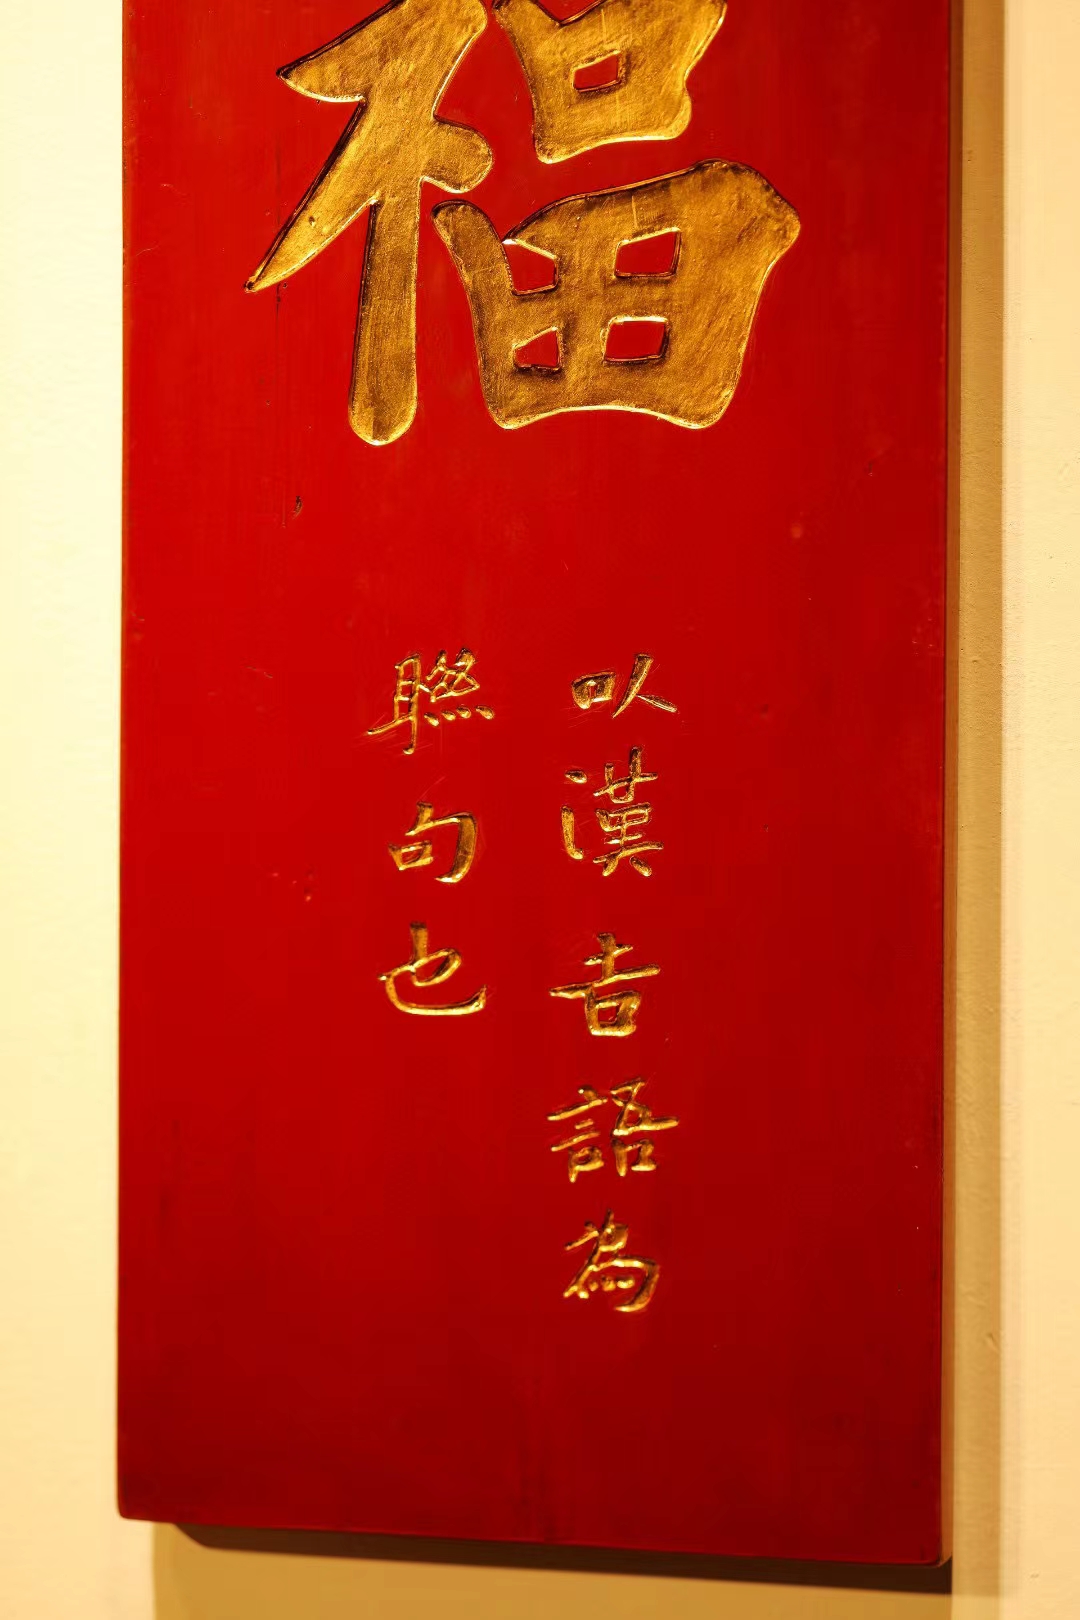 福
以漢吉語為
聯句也